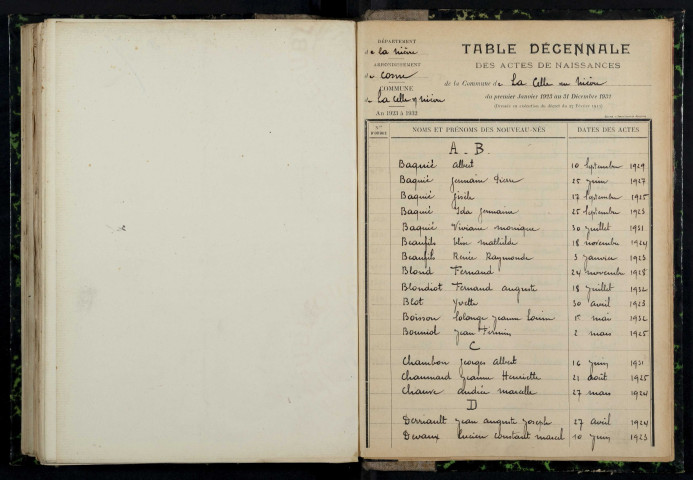 DÉPARTEMENT
de la Nièvre
ARRONDISSEMENT
de Cosne
COMMUNE
de La Celle s/ Nièvre
An 1923 à 1932
TABLE DÉCENNALE
DES ACTES DE NAISSANCES
de la Commune de La Celle sur Nièvre
du premier Janvier 1923 au 31 Décembre 1932
(Dressée en exécution du décret du
N°s D'ORDRE NOMS ET PRÉNOMS DES NOUVEAU-NÉS DATES DES ACTES
A - B
Baquié Albert 10 Septembre 1929
Baquié Germain Pierre 25 juin 1927
Baquié Gisèle 17 Septembre 1925
Baquié Ida Germaine 25 Septembre 1923
Baquié Viviane monique 30 juillet 1931
Beaufils Elise mathilde 18 novembre 1924
Beaufils Renée Raymonde 3 Janvier 1923
Blond Fernand 24 novembre 1928
Blondiot Fernand auguste 18 juillet 1932
Blot Yvette 30 avril 1928
Boisson Solange Jeanne Louise 1er mai 1932
Bouniol Jean Firmin 2 mars 1925
C
Chambon Georges Albert 16 juin 1931
Chaumard Jeanne Henriette 21 août 1925
Chauve Andrée marcelle 27 mars 1924
D
Derriault Jean auguste Joseph 27 avril 1924
Devaux Lucien constant marcel 10 juin 1923